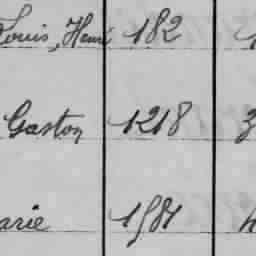 Louis, Henri 182 1
Gaston 1218 3
arie 1981 4